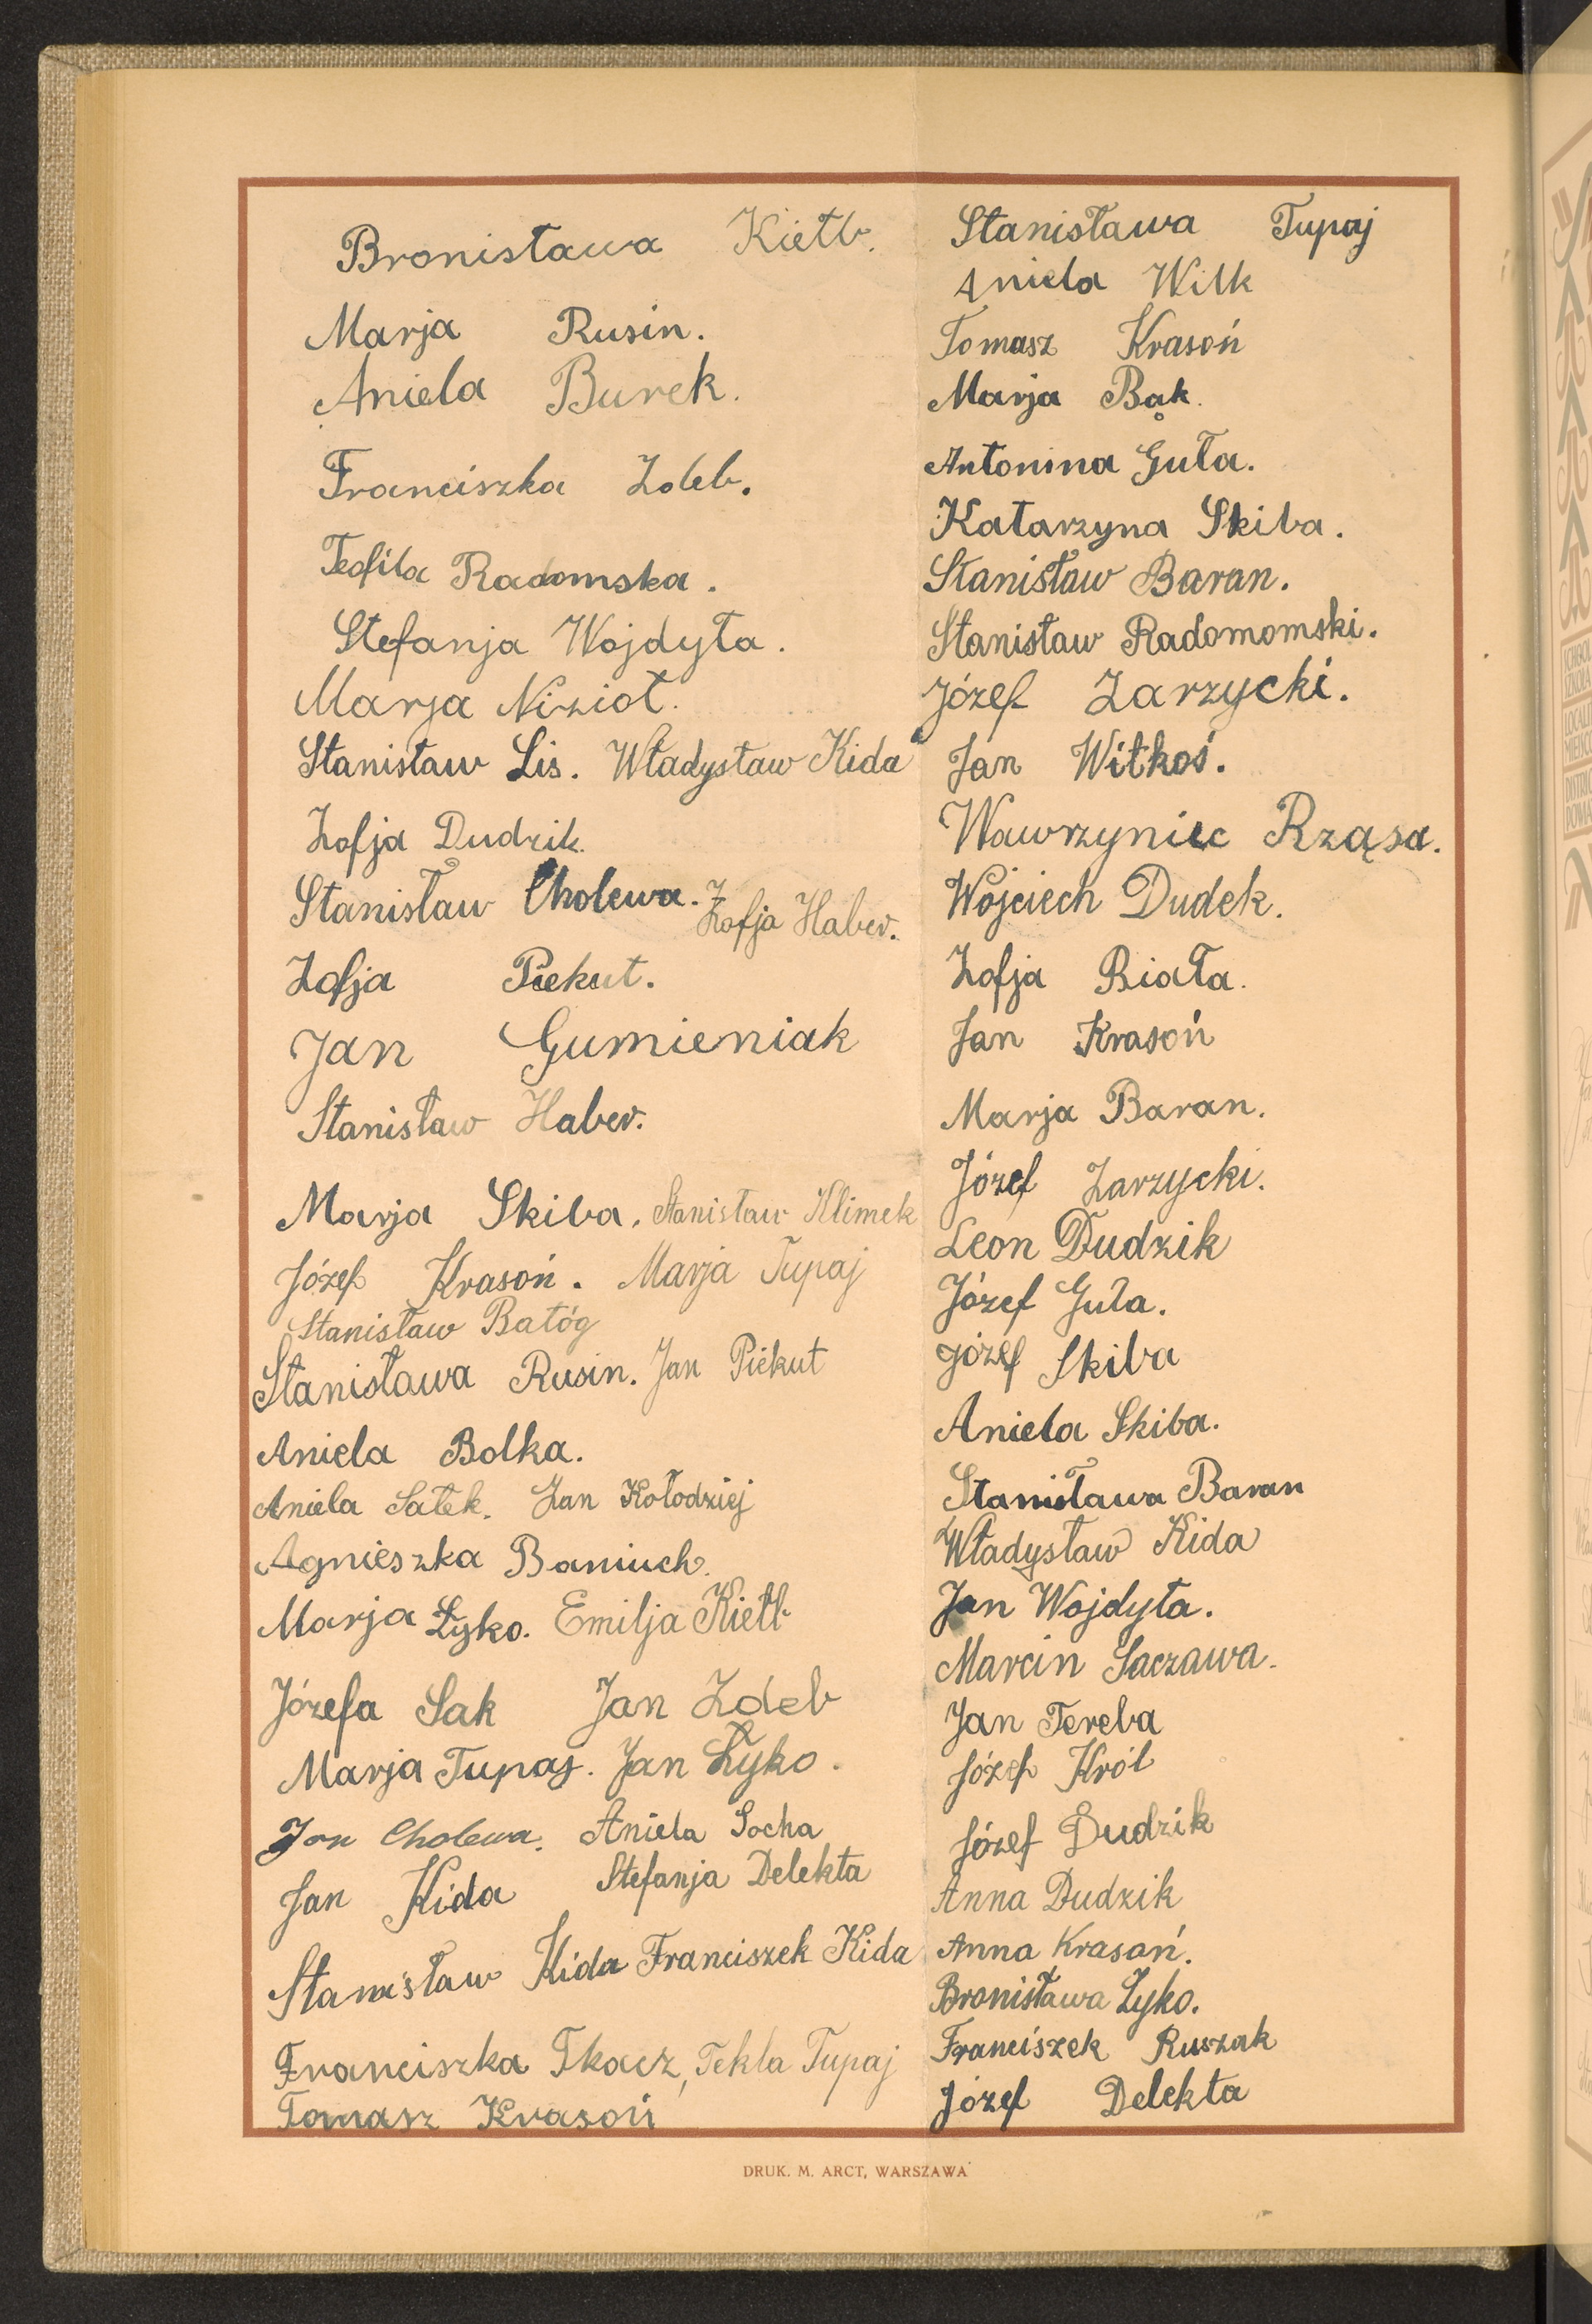 Bronisława Kiełb.
Marja Rusin.
Aniela Burek.
Franciszka Zdeb.
Teofila Radomska.
Stefanja Wojdyła.
Marja Nizioł.
Stanisław Lis. Władysław Kida
Zofja Dudzik.
Stanisław Cholewa. Zofja Haber.
Zofja Piekut.
Jan Gumieniak
Stanisław Haber.
Marja Skiba. Stanisław Klimek
Józef Krasoń. Marja Tupaj
Stanisław Batóg
Stanisława Rusin. Jan Piekut
Aniela Bolka.
Aniela Sałek. Jan Kołodziej
Agnieszka Baniuch.
Marja Łyko. Emilja Kiełb
Józefa Sak Jan Zdeb
Marja Tupaj. Jan Łyko.
Jan Cholewa. Aniela Socha
Jan Kida Stefanja Delekta
Stanisław Kida Franciszek Kida
Franciszka Tkacz, Tekla Tupaj
Tomasz Krasoń
Stanisława Tupaj
Aniela Wilk
Tomasz Krasoń
Marja Bąk.
Antonina Guła.
Katarzyna Skiba.
Stanisław Baran.
Stanisław Radomomski.
Józef Zarzycki.
Jan Witkoś.
Wawrzyniec Rząsa.
Wojciech Dudek.
Zofja Biała.
Jan Krasoń
Marja Baran.
Józef Zarzycki.
Leon Dudzik
Józef Guła.
Józef Skiba
Aniela Skiba.
Stanisława Baran
Władysław Kida
Jan Wojdyła.
Marcin Saczawa.
Jan Tereba
Józef Król
Józef Dudzik
Anna Dudzik
Anna Krasań.
Bronisława Łyko.
Franciszek Ruszak
Józef Delekta
DRUK. M. ARCT, WARSZAWA